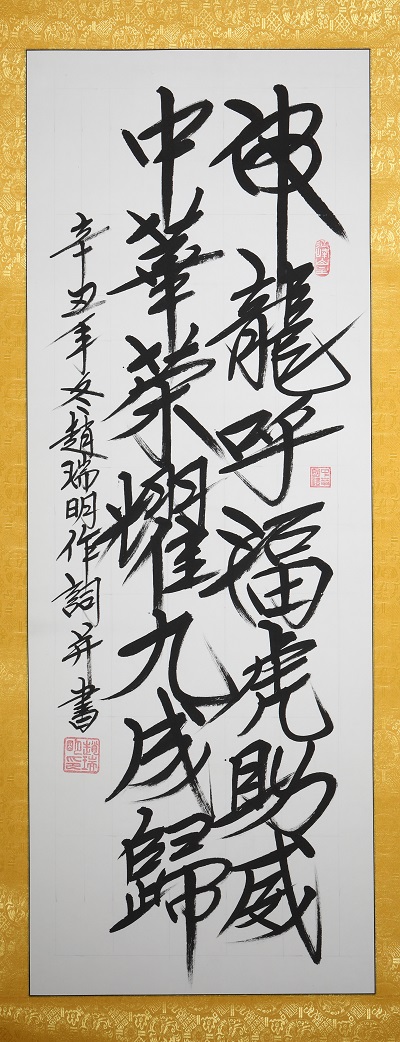 神龍呼福虎助威
中華榮耀九成歸
辛丑年冬趙瑞明作詞并書